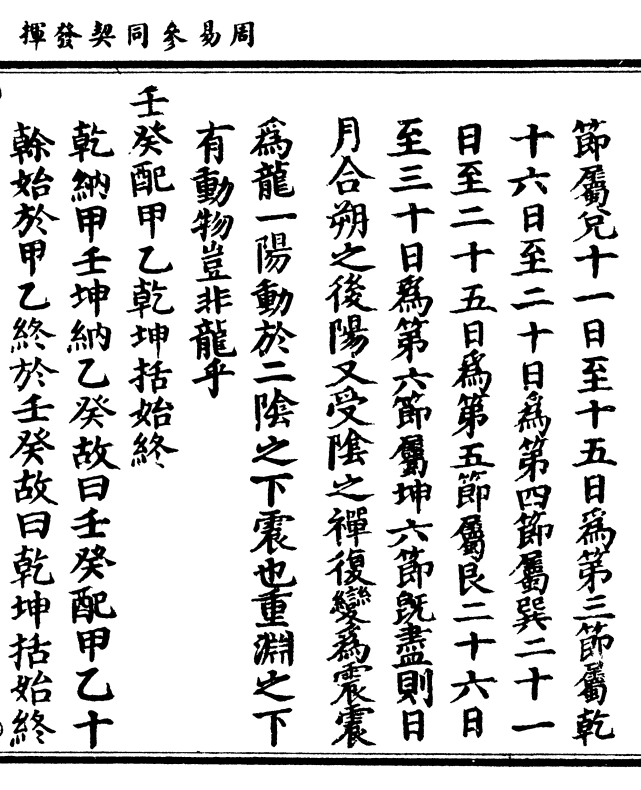 周易參同契發揮
節屬兌十一日至十五日爲第三節屬乾
十六日至二十日爲第四節屬巽二十一
日至二十五日爲第五節屬艮二十六日
至三十日爲第六節屬坤六節旣盡則日
月合朔之後陽又受陰之禪復變爲震震
爲龍一陽動於二陰之下震也重淵之下
有動物豈非龍乎
壬癸配甲乙乾坤括始終
乾納甲壬坤納乙癸故曰壬癸配甲乙十
榦始於甲乙終於壬癸故曰乾坤括始終